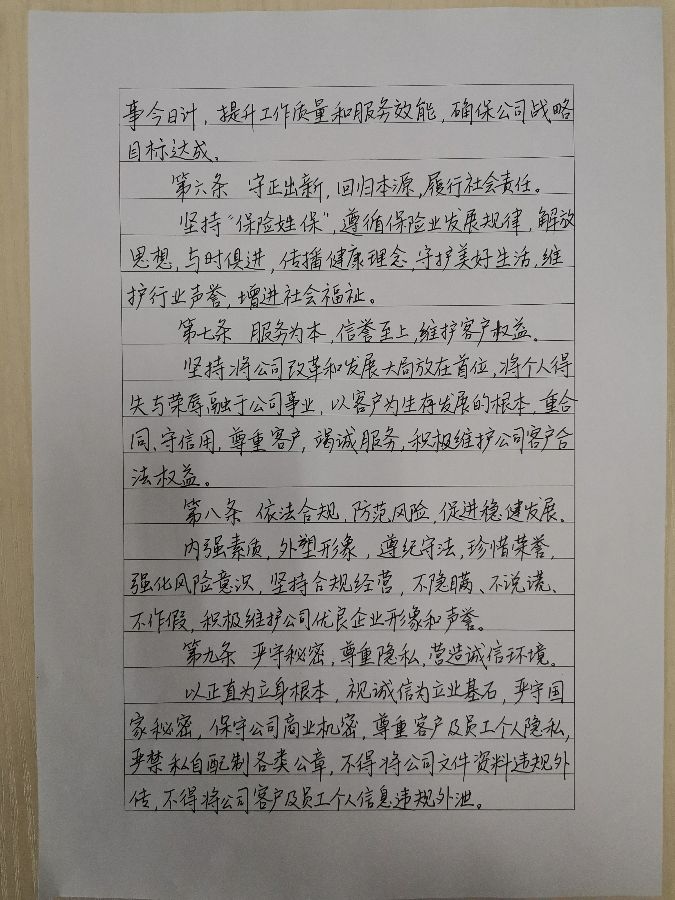 事今日计，提升工作质量和服务效能，确保公司战略
目标达成。
第六条 守正出新，回归本源，履行社会责任。
坚持“保险姓保”，遵循保险业发展规律，解放
思想，与时俱进，传播健康理念，守护美好生活，维
护行业声誉，增进社会福祉。
第七条 服务为本，信誉至上，维护客户权益。
坚持将公司改革和发展大局放在首位，将个人得
失与荣辱融于公司事业，以客户为生存发展的根本，重合
同、守信用，尊重客户，竭诚服务，积极维护公司客户合
法权益。
第八条 依法合规，防范风险，促进稳健发展。
内强素质，外塑形象，遵纪守法，珍惜荣誉，
强化风险意识，坚持合规经营，不隐瞒、不说谎、
不作假，积极维护公司优良企业形象和声誉。
第九条 严守秘密，尊重隐私，营造诚信环境。
以正直为立身根本，视诚信为立业基石，严守国
家秘密，保守公司商业机密，尊重客户及员工个人隐私，
严禁私自配制各类公章，不得将公司文件资料违规外
传，不得将公司客户及员工个人信息违规外泄。